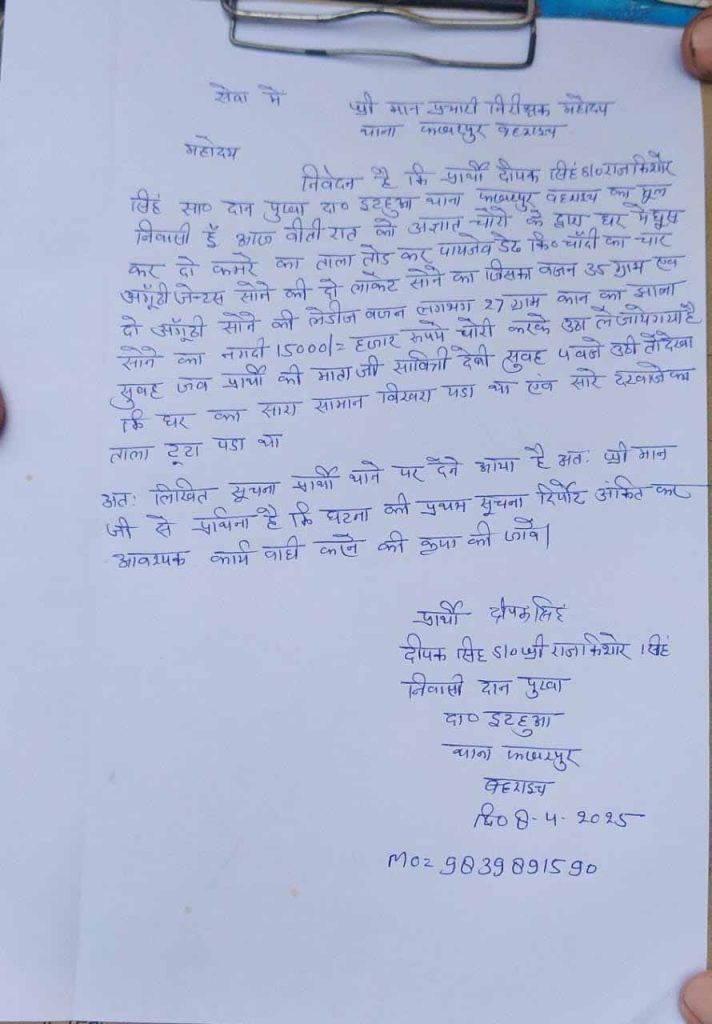 सेवा में श्री मान प्रभारी निरीक्षक महोदय
थाना फखरपुर बहराइच
महोदय
निवेदन है कि प्रार्थी दीपक सिंह S/o राजकिशोर
सिंह सा० दान पुरवा दा० इटहुआ थाना फखरपुर बहराइच का मूल
निवासी हूँ आज बीती रात को अज्ञात चोरो के द्वारा घर में घुस
कर दो कमरे का ताला तोड कर पायजेव डेढ कि० चाँदी का चार
अँगूठी जेन्टस सोने की दो लाकेट सोने का जिसका वजन 35 ग्राम एव
दो अँगूठी सोने की लेडीज वजन लगभग 27 ग्राम कान का झाला
सोने का नगदी 15000/= हजार रूपये चोरी करके उठा ले जाया गया है
सुवह जव प्रार्थी की माता जी सावित्री देवी सुवह 4 वजे उठी तो देखा
कि घर का सारा सामान विखरा पडा था एंव सारे दरवाजे का
ताला टूटा पडा था
अत: लिखित सूचना प्रार्थी थाने पर देने आया है अत: श्री मान
जी से प्रार्थना है कि घटना की प्रथम सूचना रिर्पोट अंकित कर
आवश्यक कार्य वाही करने की कृपा की जावे।
प्रार्थी दीपक सिंह
दीपक सिंह S/o श्री राज किशोर सिंह
निवासी दान पुरवा
दा० इटहुआ
थाना फखरपुर
बहराइच
दि० 8-4-2025
MO= 9839891590